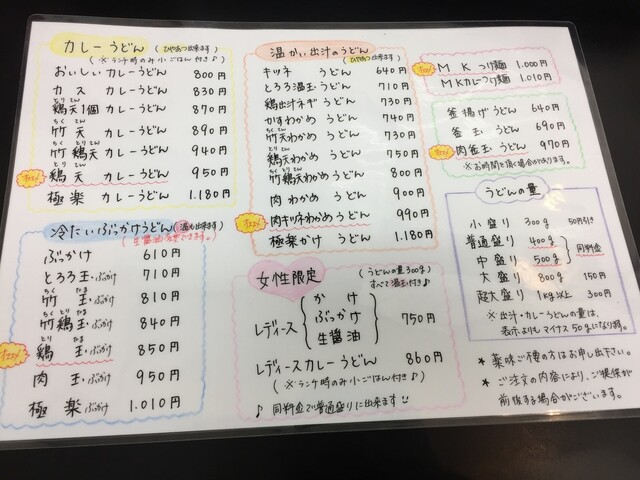 カレーうどん (ひやあつ出来ます)
(※ランチ時のみ小ごはん付き♪)
おいしいカレーうどん 800円
カス カレーうどん 830円
とり てん
鶏天1個カレーうどん 870円
ちく てん
竹天 カレーうどん 890円
ちく とり てん
竹鶏天カレーうどん 940円
とり てん
鶏天 カレーうどん 950円
極楽 カレーうどん 1.180円
冷たいぶっかけうどん (温も出来ます)
ぶっかけ 610円
とろろ玉・ぶっかけ 710円
ちく たま
竹玉・ぶっかけ 810円
ちく とり たま
竹鶏玉・ぶっかけ 840円
とり たま
鶏玉・ぶっかけ 850円
肉玉・ぶっかけ 950円
極楽・ぶっかけ 1.010円
温かい出汁のうどん (ひやあつ出来ます)
キツネ うどん 640円
とろろ温玉うどん 710円
鶏出汁ネギうどん 730円
かすわかめ うどん 740円
ちく てん
竹天わかめ うどん 730円
とり てん
鶏天わかめ うどん 750円
ちく とり てん
竹鶏天わかめうどん 800円
肉わかめ うどん 900円
肉キツネわかめうどん 990円
極楽かけ うどん 1.180円
女性限定 (うどんの量300g)
すべて温玉付き♪
レディース
かけ
ぶっかけ
生醤油
750円
レディースカレーうどん 860円
(※ランチ時のみ小ごはん付き♪)
♪同料金で普通盛りに出来ます!!
MKつけ麺 1.000円
MKカレーつけ麺 1.010円
釜揚げうどん 640円
釜玉うどん 690円
肉釜玉うどん 970円
※お時間を頂く場合があります。
うどんの量
小盛り 300g 50円引き
普通盛り 400g
中盛り 500g
同料金
大盛り 800g 150円
超大盛り 1kg以上 300円
※出汁・カレーうどんの量は、
表示よりもマイナス50gになります。
*薬味ご不要の方はお申し出下さい。
*ご注文の内容により、ご提供が
前後する場合がございます。